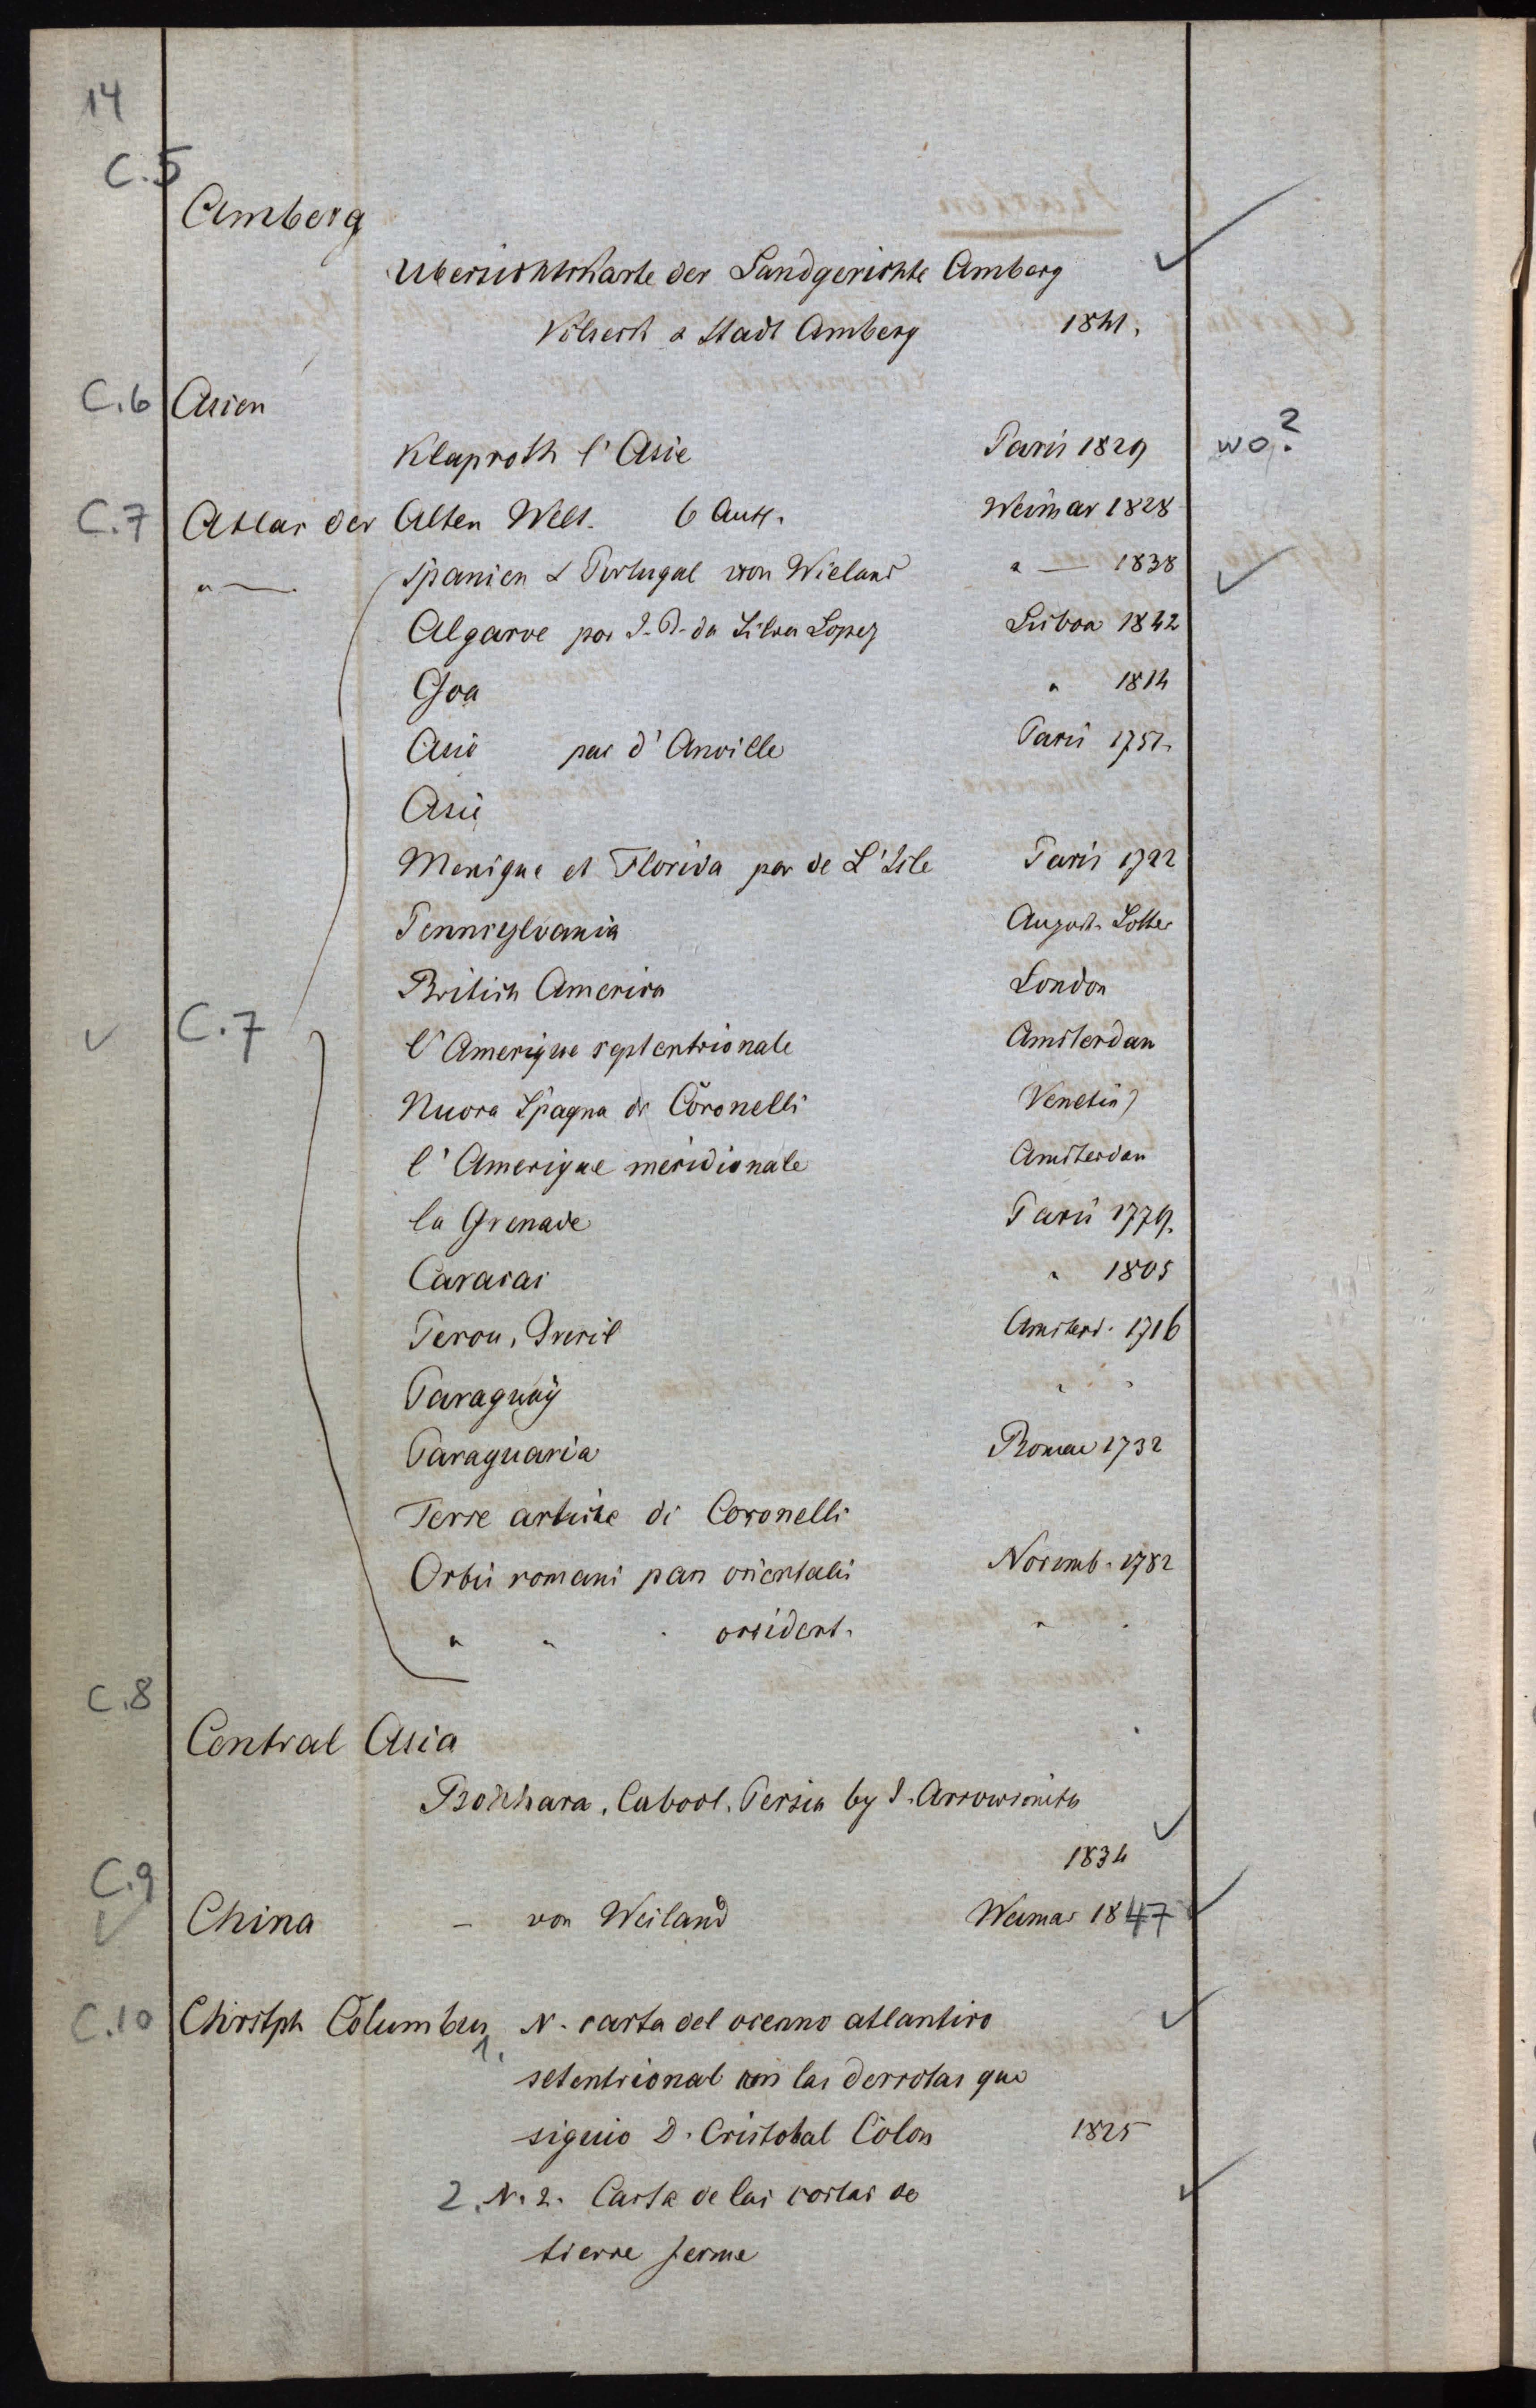 14
C.5
Amberg
Übersichtskarte der Landgerichte Amberg
Vilseck & Stadt Amberg 1841.
C.6 Asien
Klaproth l'Asie Paris 1829 wo?
C.7 Atlas der Alten Welt. 6 Aufl. Weimar 1828
" — Spanien & Portugal von Wieland " — 1838
Algarve por J. B. da Silva Lopez Lisboa 1842
Goa " 1814
Asie par d'Anville Paris 1751.
Asie
Mexique et Florida par de L'Isle Paris 1722
Pennsylvania August. Lotter
British America London
C.7
l'Amerique septentrionale Amsterdam
Nuova Spagna di Coronelli Venetia
l'Amerique meridionale Amsterdam
la Grenade Paris 1779.
Caracas " 1805
Perou, Bresil Amsterd. 1716
Paraguaÿ " "
Paraguaria Romae 1732
Terre artiche di Coronelli
Orbis romani pars orientalis Norimb. 1782
" " " occident. " "
C.8
Central Asia
Bokhara, Cabool, Persia by J. Arrowsmith
1834
C.9
China — von Weiland Weimar 1847
C.10 Christph Columbus 1. N. carta del oceano atlantico
setentrional con las derrotas que
siguio D. Cristobal Colon 1825
2. N. 2. Carta de las costas de
tierre ferme